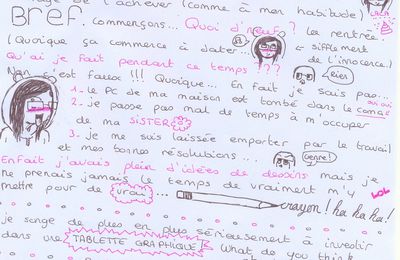 de l'achever (comme à mon habitude)
BREF. Commençons... Quoi d'neuf? la rentrée
(Quoique ça commence à dater...
← sifflement de l'innocence.)
Qu'ai je fait pendant ce temps ???
rien
Nan c'est faux !!! Quoique... En fait je sais pas...
1. Le PC de ma maison est tombé dans le coma
oui oui
2. je passe pas mal de temps à m'occuper
de ma SISTER
3. je me suis laissée emporter par le travail
et mes bonnes résolutions...
genre!
Enfait j'avais plein d'idées de dessins mais je
ne prenais jamais le temps de vraiment m'y
mettre pour de vrai...
LOL
crayon! ha ha ha!
je songe de plus en plus sérieusement à investir
dans une TABLETTE GRAPHIQUE. What do you think